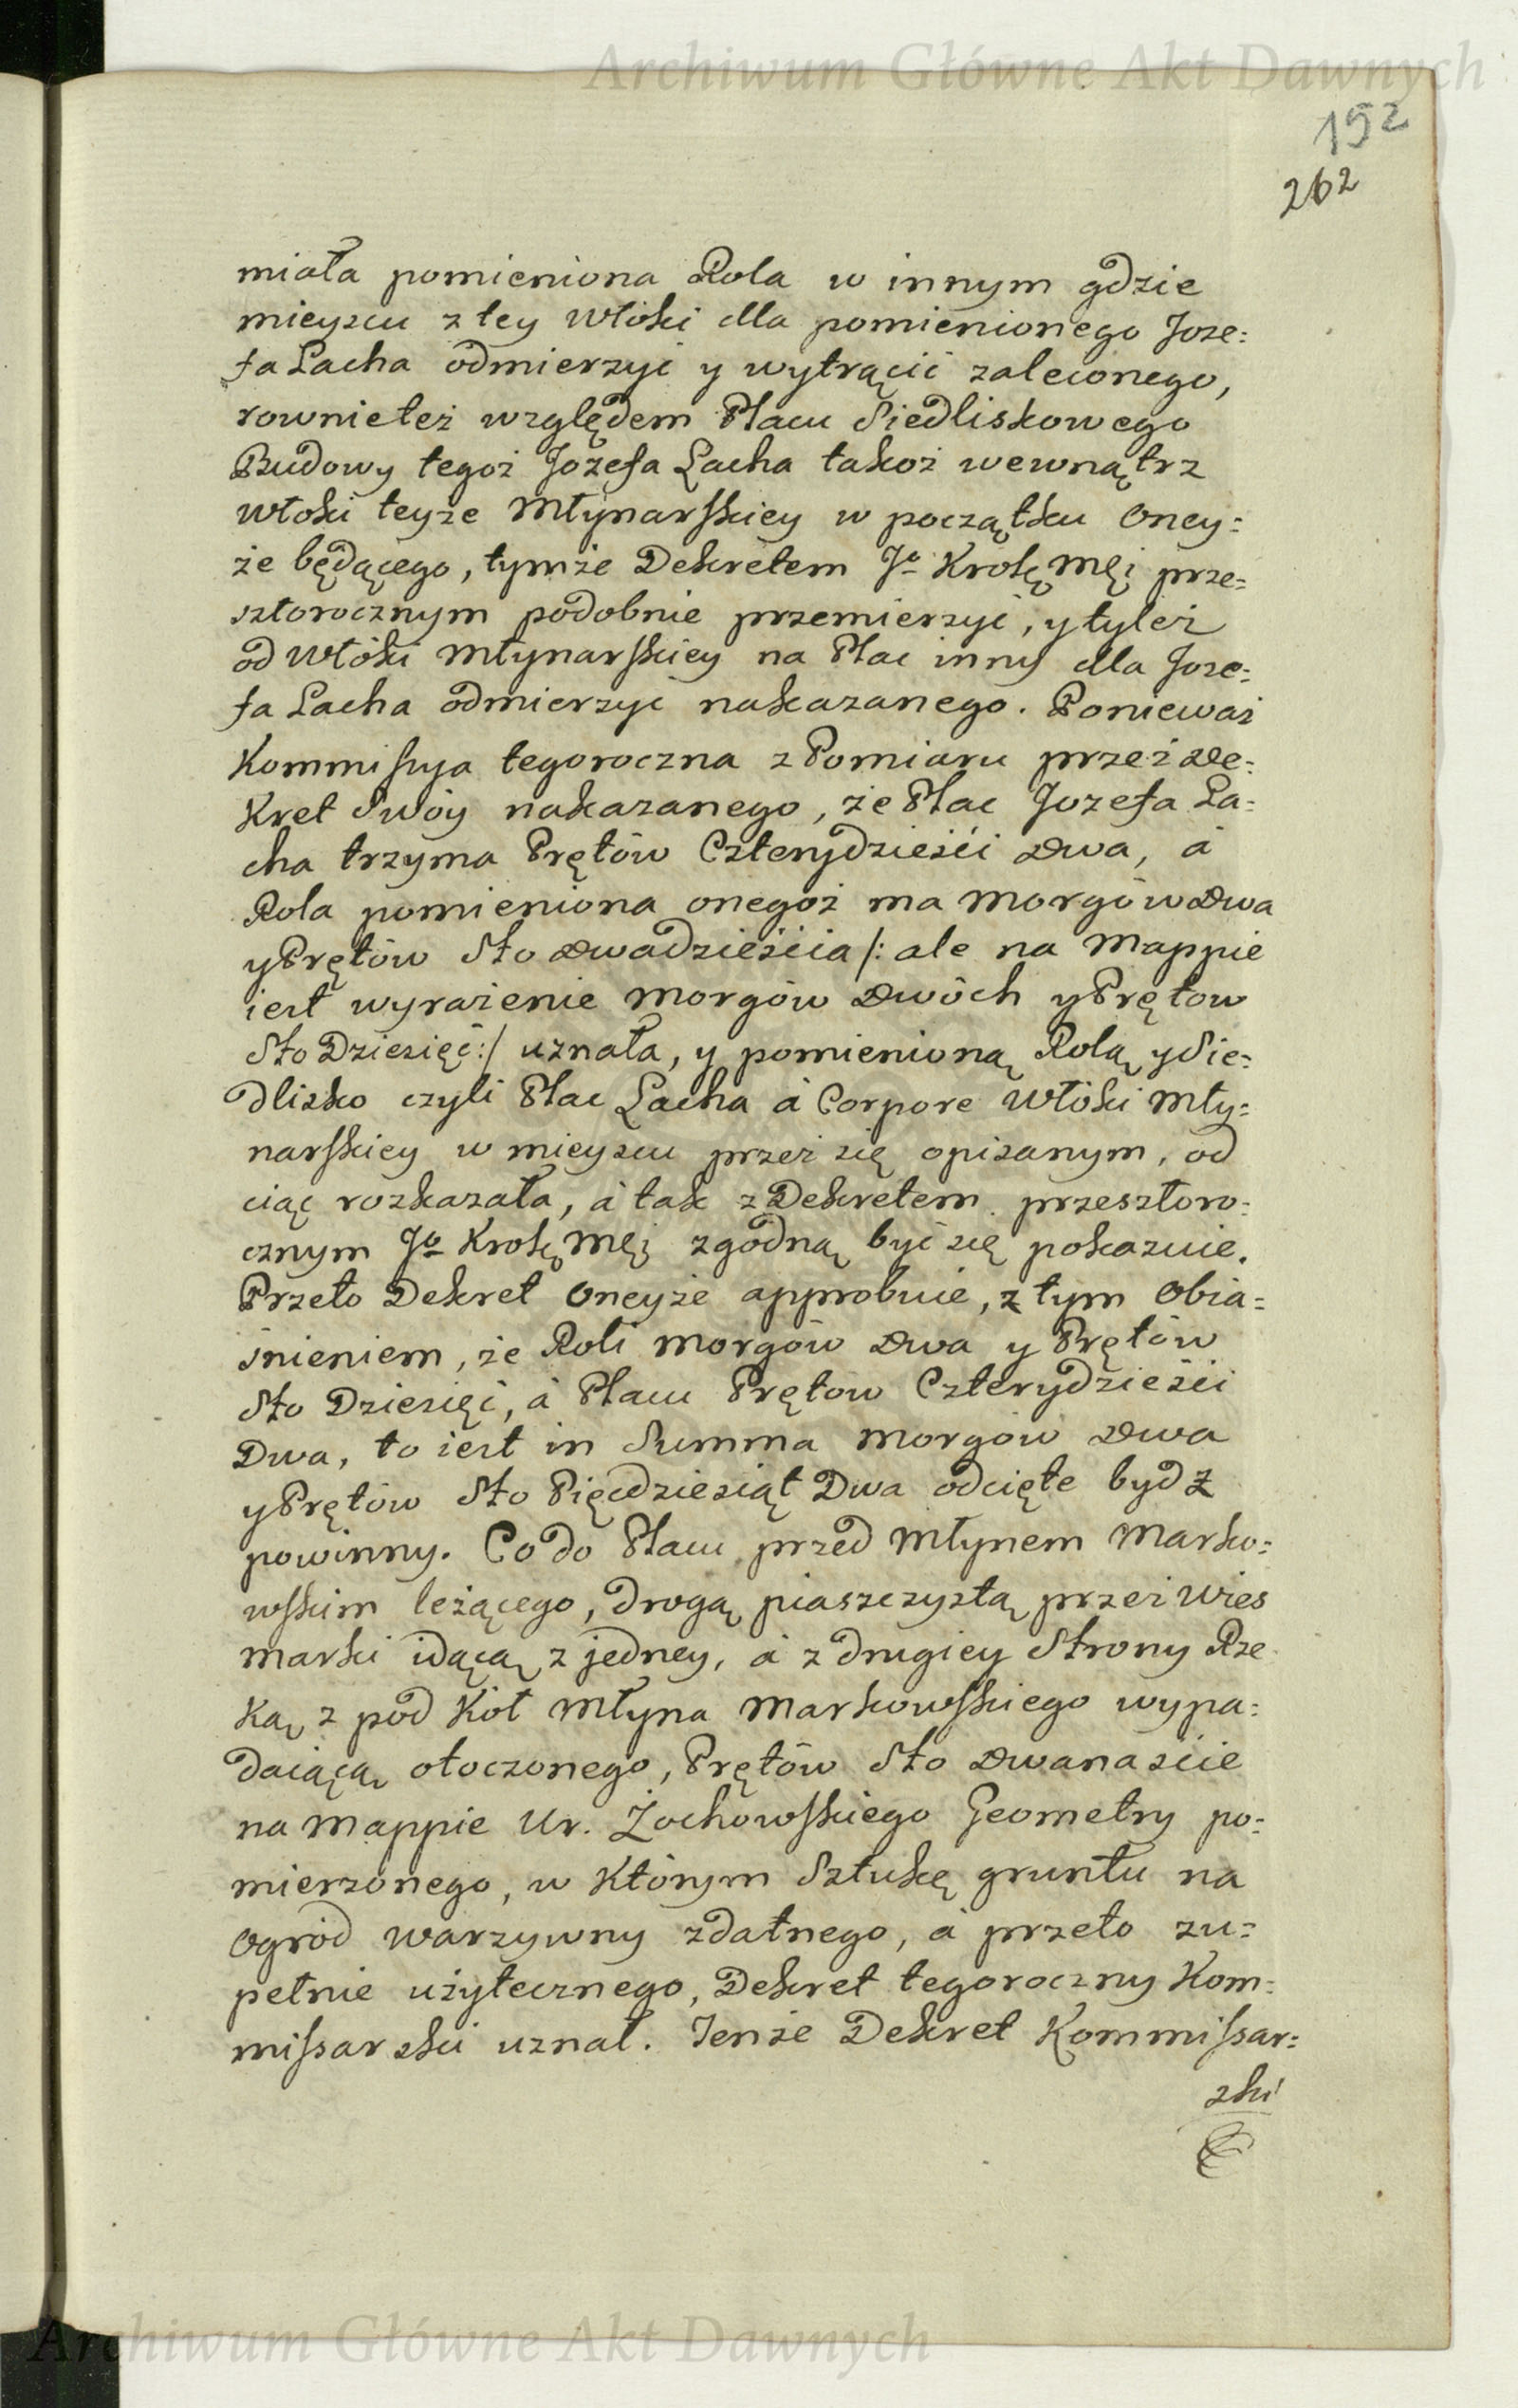 Archiwum Główne Akt Dawnych
152
262
miała pomieniona Rola w innym gdzie
mieyscu z tey Włóki dla pomienionego Joze=
fa Lacha odmierzyć y wytrącić zaleconego,
rownieteż względem Placu Siedliskowego
Budowy tegoż Józefa Lacha takoż wewnątrz
Włoki teyże Młynarskiey w początku Oney=
że będącego, tymże Dekretem Jo Krolę Mci prze=
szłorocznym podobnie przemierzyć, y tyleż
od Włóki Młynarskiey na Plac inny dla Joze=
fa Lacha odmierzyć nakazanego. Ponieważ
Kommissya tegoroczna z Pomiaru przez De=
kret Swóy nakazanego, że Plac Jozefa La=
cha trzyma Prętów Czterydzieści Dwa, á
Rola pomieniona onegoż ma Morgów Dwa
y Prętów Sto Dwadzieścia /: ale na Mappie
iest wyrażenie Morgów Dwóch y Prętow
Sto Dziesięć :/ uznała, y pomienioną Rolą y Sie=
dlisko czyli Plac Lacha á Corpore Włóki Mły=
narskiey w mieyscu przez się opisanym, od
ciąć rozkazała, á tak z Dekretem przeszłoro=
cznym Jo Krolę Mci zgodną być się pokazuie.
Przeto Dekret Oneyże approbuie, z tym Obia=
śnieniem, że Roli Morgów Dwa y Prętów
Sto Dziesięć, á Placu Prętow Czterydzieści
Dwa, to iest in Summa Morgów Dwa
y Prętów Sto Pięćdziesiąt Dwa odcięte bydź
powinny. Co do Placu przed Młynem Marko=
wskim leżącego, drogą piaszczystą przez Wies
Marki idącą z jedney, á z drugiey Strony Rze
ką z pod Kół Młyna Markowskiego wypa=
daiącą otoczonego, Prętów Sto Dwanaście
na Mappie Ur. Żochowskiego Geometry po=
mierzonego, w którym Sztukę gruntu na
Ogród warzywny zdatnego, á przeto zu=
pełnie użytecznego, Dekret tegoroczny Kom=
missarski uznał. Tenże Dekret Kommissar=
ski
Archiwum Główne Akt Dawnych